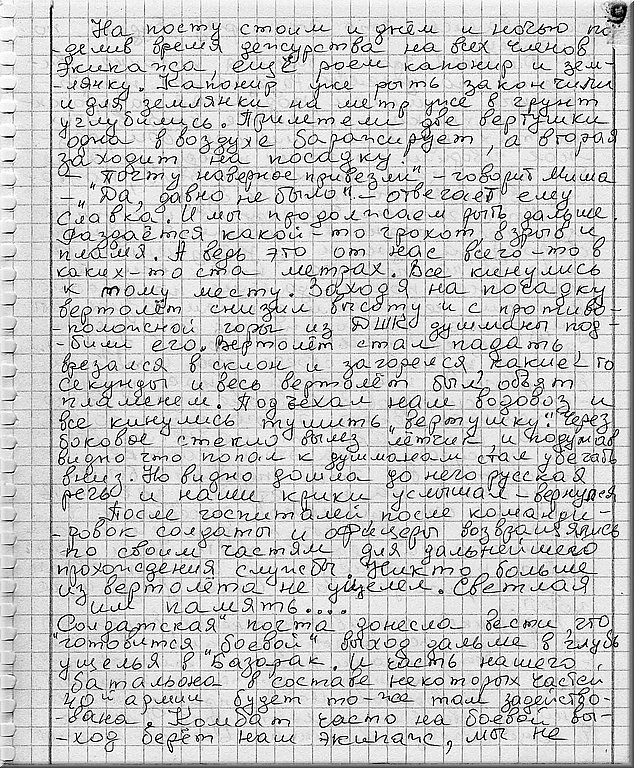 9
На посту стоим и днём и ночью по-
-делив время дежурства на всех членов
экипажа, ещё роем капонир и зем-
-лянку. Капонир уже рыть закончили
и для землянки на метр уже в грунт
углубились. Прилетели две вертушки
одна в воздухе баражирует, а вторая
заходит на посадку.
- "Почту наверное привезли" - говорит Миша
- "Да, давно не было". - отвечает ему
Славка. И мы продолжаем рыть дальше.
Раздаётся какой-то грохот, взрыв и
пламя. А ведь это от нас всего-то в
каких-то ста метрах. Все кинулись
к тому месту. Заходя на посадку
вертолёт снизил высоту и с противо-
-положной горы из ДШК душманы под-
-били его. Вертолёт стал падать
врезался в склон и загорелся, какие-то
секунды и весь вертолёт был объят
пламенем. Подъехал наш водовоз и
все кинулись тушить "вертушку". Через
боковое стекло вылез лётчик, и подумав
видно что попал к душманам стал убегать
вниз. Но видно дошла до него русская
речь и наши крики услышал - вернулся
После госпиталей после команди-
-ровок солдаты и офицеры возвращялись
по своим частям для дальнейшего
прохождения службы. Никто больше
из вертолёта не уцелел. Светлая
им память....
"Солдатская" почта донесла вести, что
готовится "боевой" выход дальше в глубь
ущелья в Базарак. И часть нашего
батальона в составе некоторых частей
40й армии будет то-же там задейство-
-вана. Комбат часто на боевой вы-
-ход берёт наш экипаж, мы не